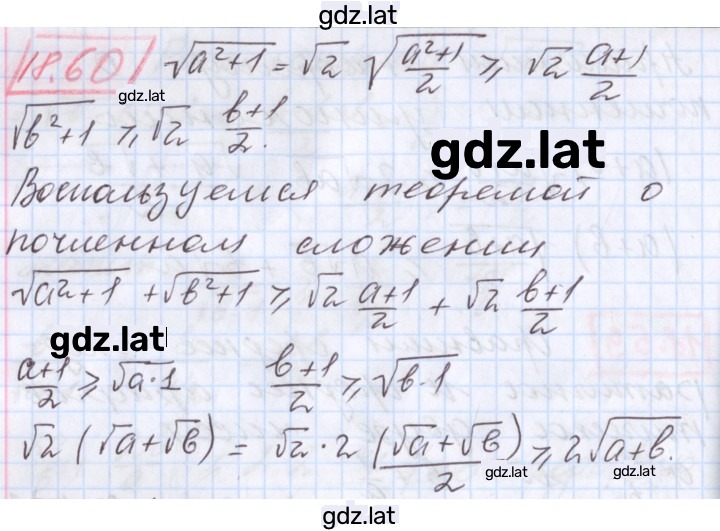 gdz.lat
18.60 √(a²+1) = √2 √((a²+1)/2) ≥ √2 (a+1)/2
gdz.lat
√(b²+1) ≥ √2 (b+1)/2.
gdz.lat
Воспользуемся теоремой о
почленном сложении
√(a²+1) + √(b²+1) ≥ √2 (a+1)/2 + √2 (b+1)/2
gdz.lat
(a+1)/2 ≥ √(a·1) (b+1)/2 ≥ √(b·1)
√2 (√a+√b) = √2·2 (√a+√b)/2 ≥ 2√(a+b).
gdz.lat gdz.lat
gdz.lat